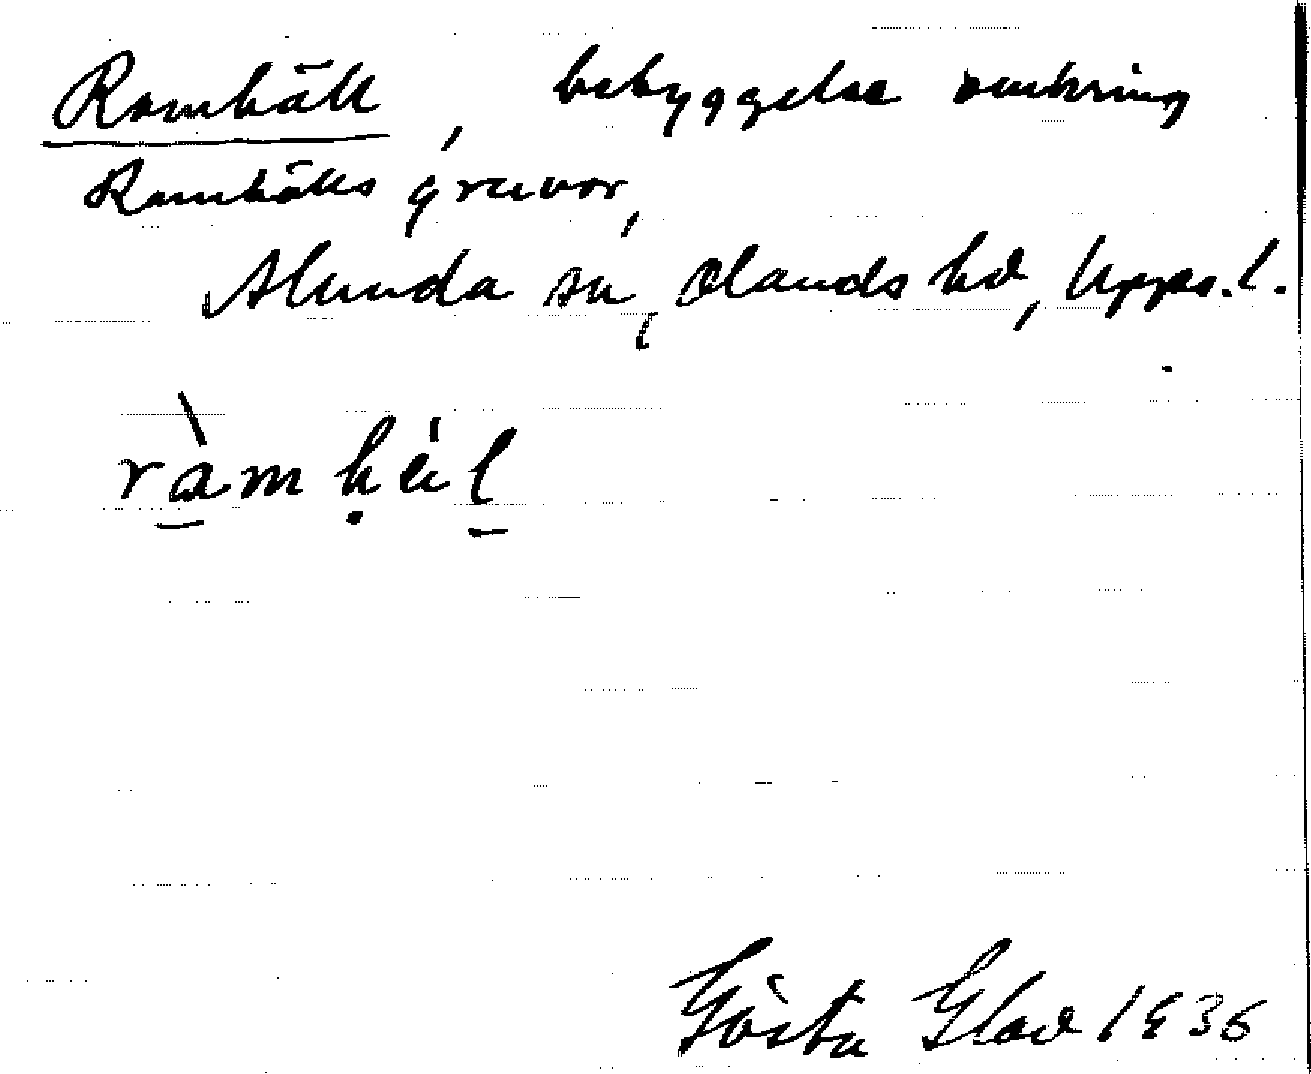 Ramhäll, bebyggelse omkring
Ramhälls gruvor,
Alunda sn, Olands hd, Upps. l.
ràmhäl
Gösta Glad 1936